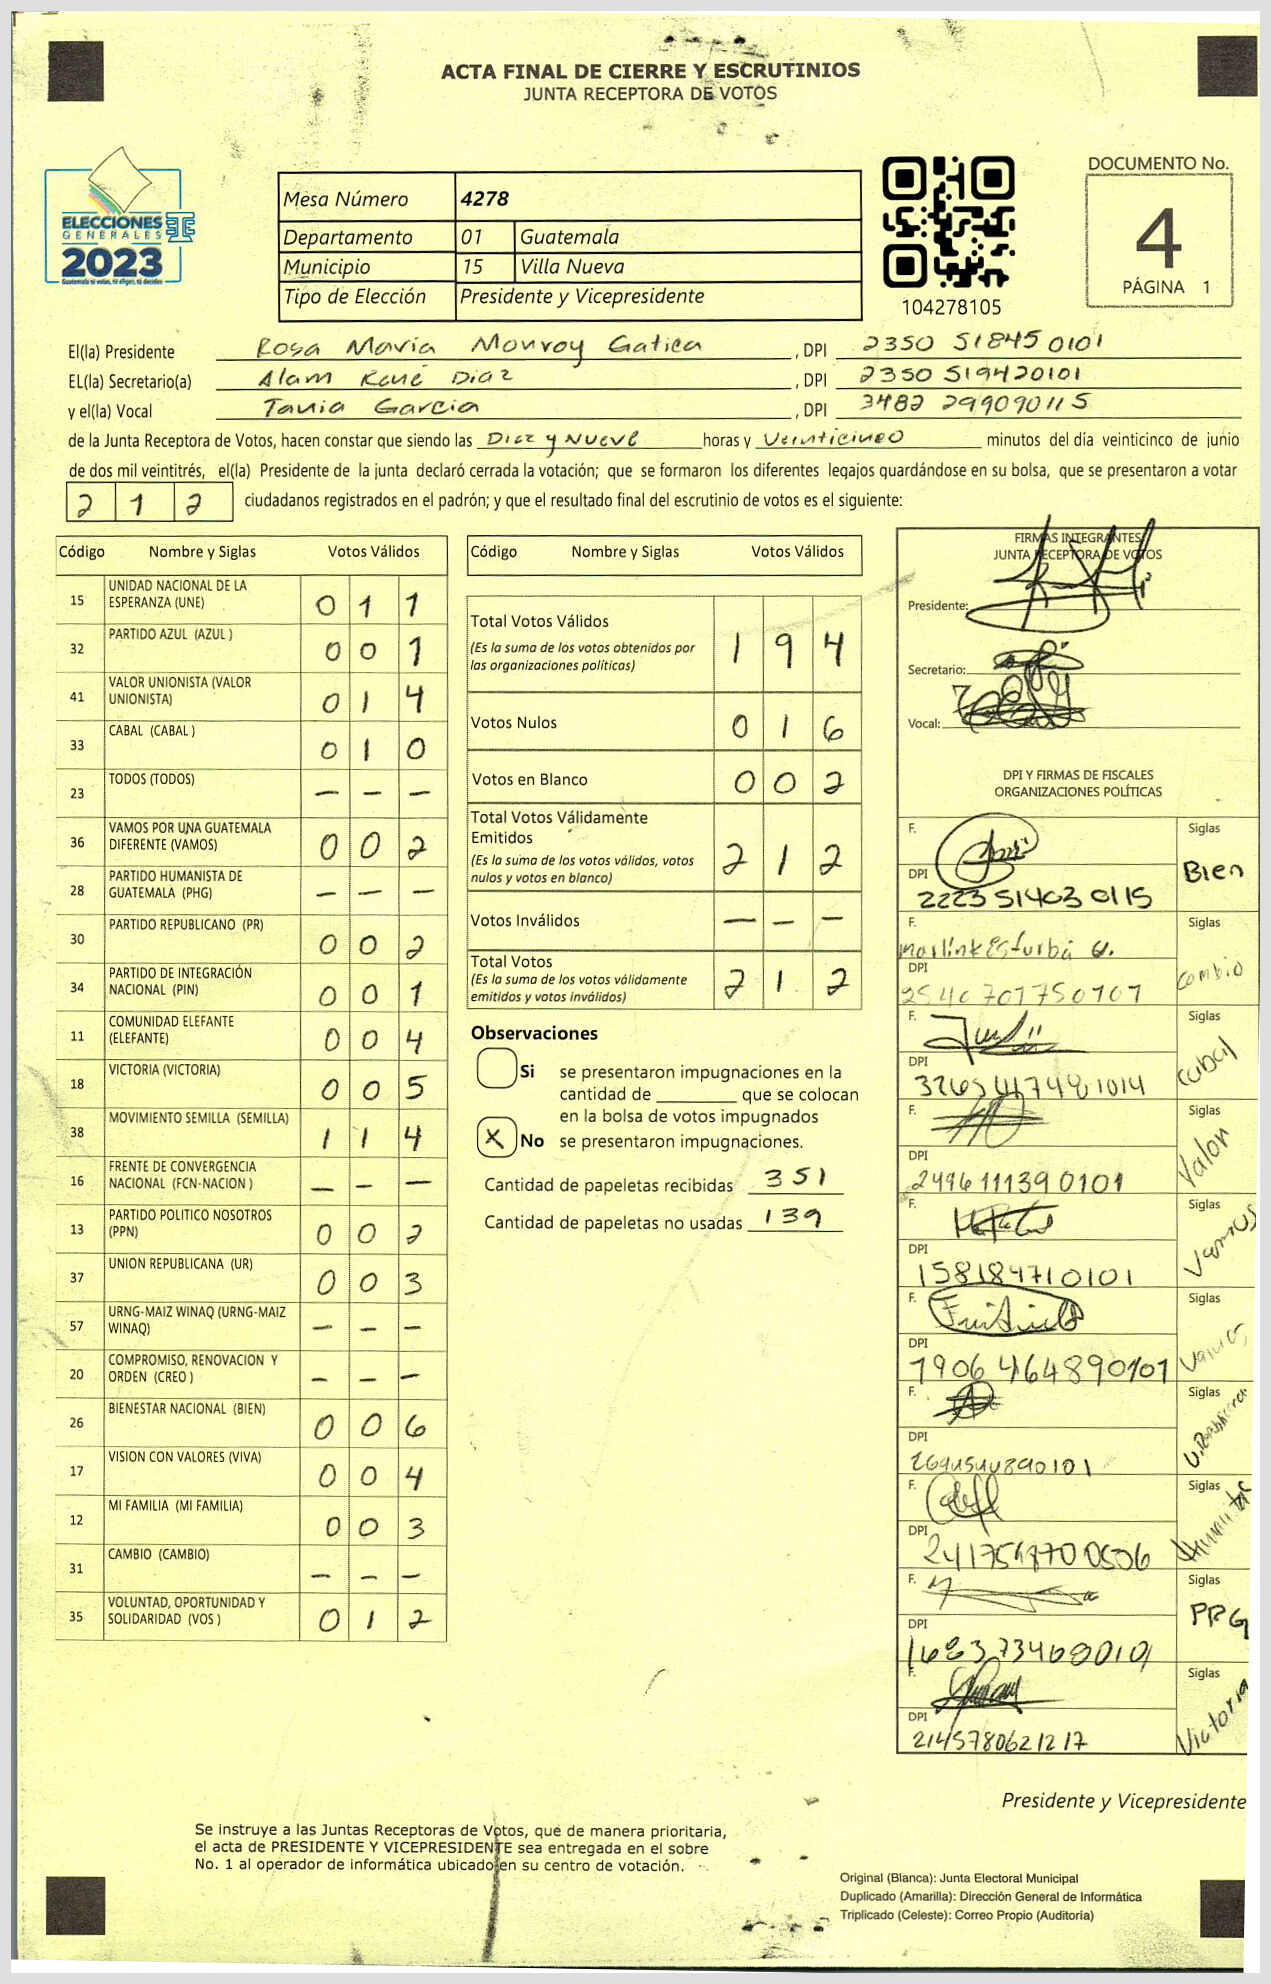 ACTA FINAL DE CIERRE Y ESCRUTINIOS
JUNTA RECEPTORA DE VOTOS
ELECCIONES
GENERALES
2023
Guatemala tú votas, tú eliges, tú decides
Mesa Número 4278
Departamento 01 Guatemala
Municipio 15 Villa Nueva
Tipo de Elección Presidente y Vicepresidente
104278105
DOCUMENTO No.
4
PÁGINA 1
El(la) Presidente Rosa María Monroy Gatica, DPI 2350 51845 0101
EL(la) Secretario(a) Alam René Diaz, DPI 2350 519420101
y el(la) Vocal Tania Garcia, DPI 3482 299090115
de la Junta Receptora de Votos, hacen constar que siendo las Diez y Nueve horas y Veinticinco minutos del día veinticinco de junio
de dos mil veintitrés, el(la) Presidente de la junta declaró cerrada la votación; que se formaron los diferentes legajos quardándose en su bolsa, que se presentaron a votar
2 1 2 ciudadanos registrados en el padrón; y que el resultado final del escrutinio de votos es el siguiente:
Código Nombre y Siglas Votos Válidos
15 UNIDAD NACIONAL DE LA ESPERANZA (UNE) 0 1 1
32 PARTIDO AZUL (AZUL ) 0 0 1
41 VALOR UNIONISTA (VALOR UNIONISTA) 0 1 4
33 CABAL (CABAL ) 0 1 0
23 TODOS (TODOS) — — —
36 VAMOS POR UNA GUATEMALA DIFERENTE (VAMOS) 0 0 2
28 PARTIDO HUMANISTA DE GUATEMALA (PHG) — — —
30 PARTIDO REPUBLICANO (PR) 0 0 2
34 PARTIDO DE INTEGRACIÓN NACIONAL (PIN) 0 0 1
11 COMUNIDAD ELEFANTE (ELEFANTE) 0 0 4
18 VICTORIA (VICTORIA) 0 0 5
38 MOVIMIENTO SEMILLA (SEMILLA) 1 1 4
16 FRENTE DE CONVERGENCIA NACIONAL (FCN-NACION ) — — —
13 PARTIDO POLITICO NOSOTROS (PPN) 0 0 2
37 UNION REPUBLICANA (UR) 0 0 3
57 URNG-MAIZ WINAQ (URNG-MAIZ WINAQ) — — —
20 COMPROMISO, RENOVACION Y ORDEN (CREO ) — — —
26 BIENESTAR NACIONAL (BIEN) 0 0 6
17 VISION CON VALORES (VIVA) 0 0 4
12 MI FAMILIA (MI FAMILIA) 0 0 3
31 CAMBIO (CAMBIO) — — —
35 VOLUNTAD, OPORTUNIDAD Y SOLIDARIDAD (VOS ) 0 1 2
Código Nombre y Siglas Votos Válidos
Total Votos Válidos 1 9 4
(Es la suma de los votos obtenidos por
las organizaciones políticas)
Votos Nulos 0 1 6
Votos en Blanco 0 0 2
Total Votos Válidamente
Emitidos 2 1 2
(Es la suma de los votos válidos, votos
nulos y votos en blanco)
Votos Inválidos — — —
Total Votos 2 1 2
(Es la suma de los votos válidamente
emitidos y votos inválidos)
Observaciones
Si se presentaron impugnaciones en la
cantidad de ________ que se colocan
en la bolsa de votos impugnados
X No se presentaron impugnaciones.
Cantidad de papeletas recibidas 351
Cantidad de papeletas no usadas 139
FIRMAS INTEGRANTES
JUNTA RECEPTORA DE VOTOS
Presidente:
Secretario:
Vocal:
DPI Y FIRMAS DE FISCALES
ORGANIZACIONES POLÍTICAS
F. Siglas
DPI Bien
2223 51403 0115
F. Siglas
DPI Cambio
2540701750101
F. Siglas
DPI Cabal
F. Siglas
DPI Valon
2496111390101
F. Siglas
DPI Vamos
158184710101
F. Siglas
DPI Vamos
1906464890101
F. Siglas
DPI
F. Siglas
DPI
F. Siglas
DPI PPG
F. Siglas
DPI Victoria
2145780621217
Presidente y Vicepresidente
Se instruye a las Juntas Receptoras de Votos, que de manera prioritaria,
el acta de PRESIDENTE Y VICEPRESIDENTE sea entregada en el sobre
No. 1 al operador de informática ubicado en su centro de votación.
Original (Blanca): Junta Electoral Municipal
Duplicado (Amarilla): Dirección General de Informática
Triplicado (Celeste): Correo Propio (Auditoría)